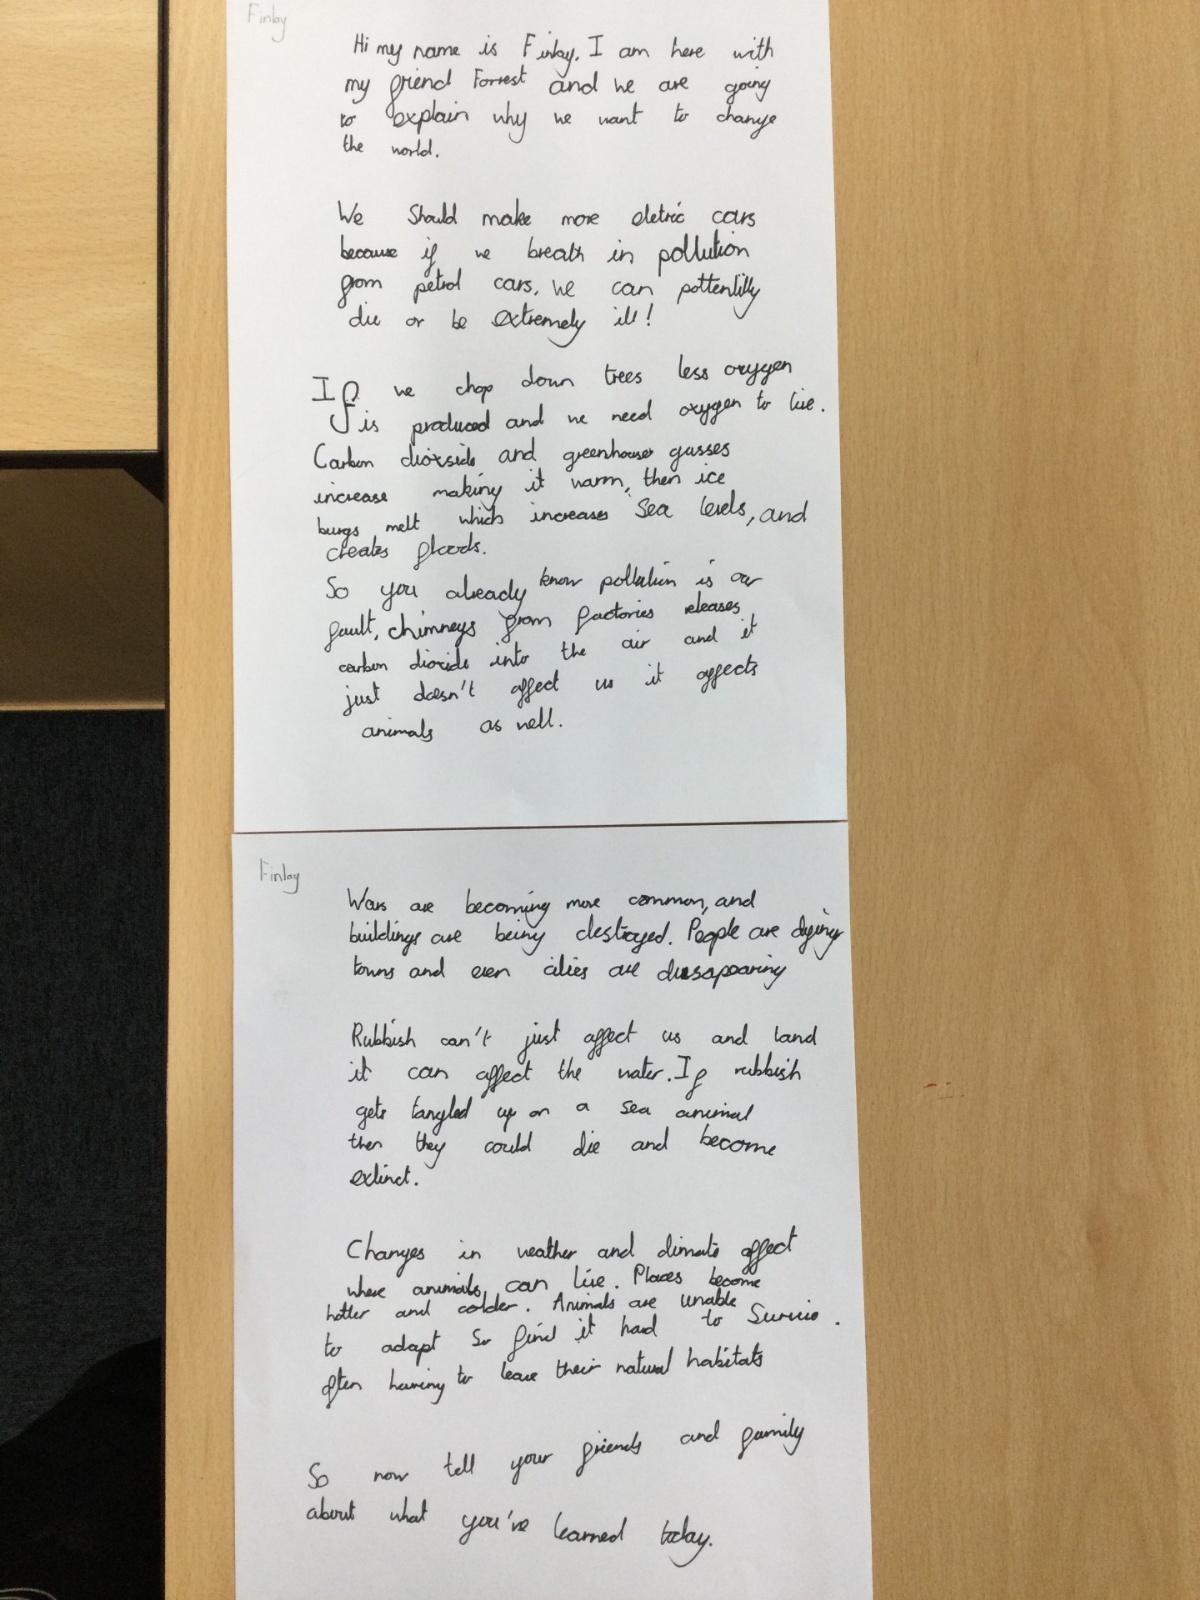 Finlay
Hi my name is Finlay. I am here with
my friend Forrest and we are going
to explain why we want to change
the world.
We should make more eletric cars
because if we breath in pollution
from petrol cars, we can pottentilly
die or be extremely ill!
If we chop down trees less oxygen
is produced and we need oxygen to live.
Carbon dioxside and greenhouse gasses
increase making it warm, then ice
burgs melt which increases sea levels, and
creates floods.
So you already know pollution is our
fault, chimneys from factories releases
carbon dioxide into the air and it
just doesn't affect us it affects
animals as well.
Finlay
Wars are becoming more common, and
buildings are being destroyed. People are dying
towns and even cities are dissapearing
Rubbish can't just affect us and land
it can affect the water. If rubbish
gets tangled up on a sea animal
then they could die and become
extinct.
Changes in weather and climate affect
where animals can live. Places become
hotter and colder. Animals are unable
to adapt so find it hard to survive.
often having to leave their natural habitats
So now tell your friends and family
about what you've learned today.